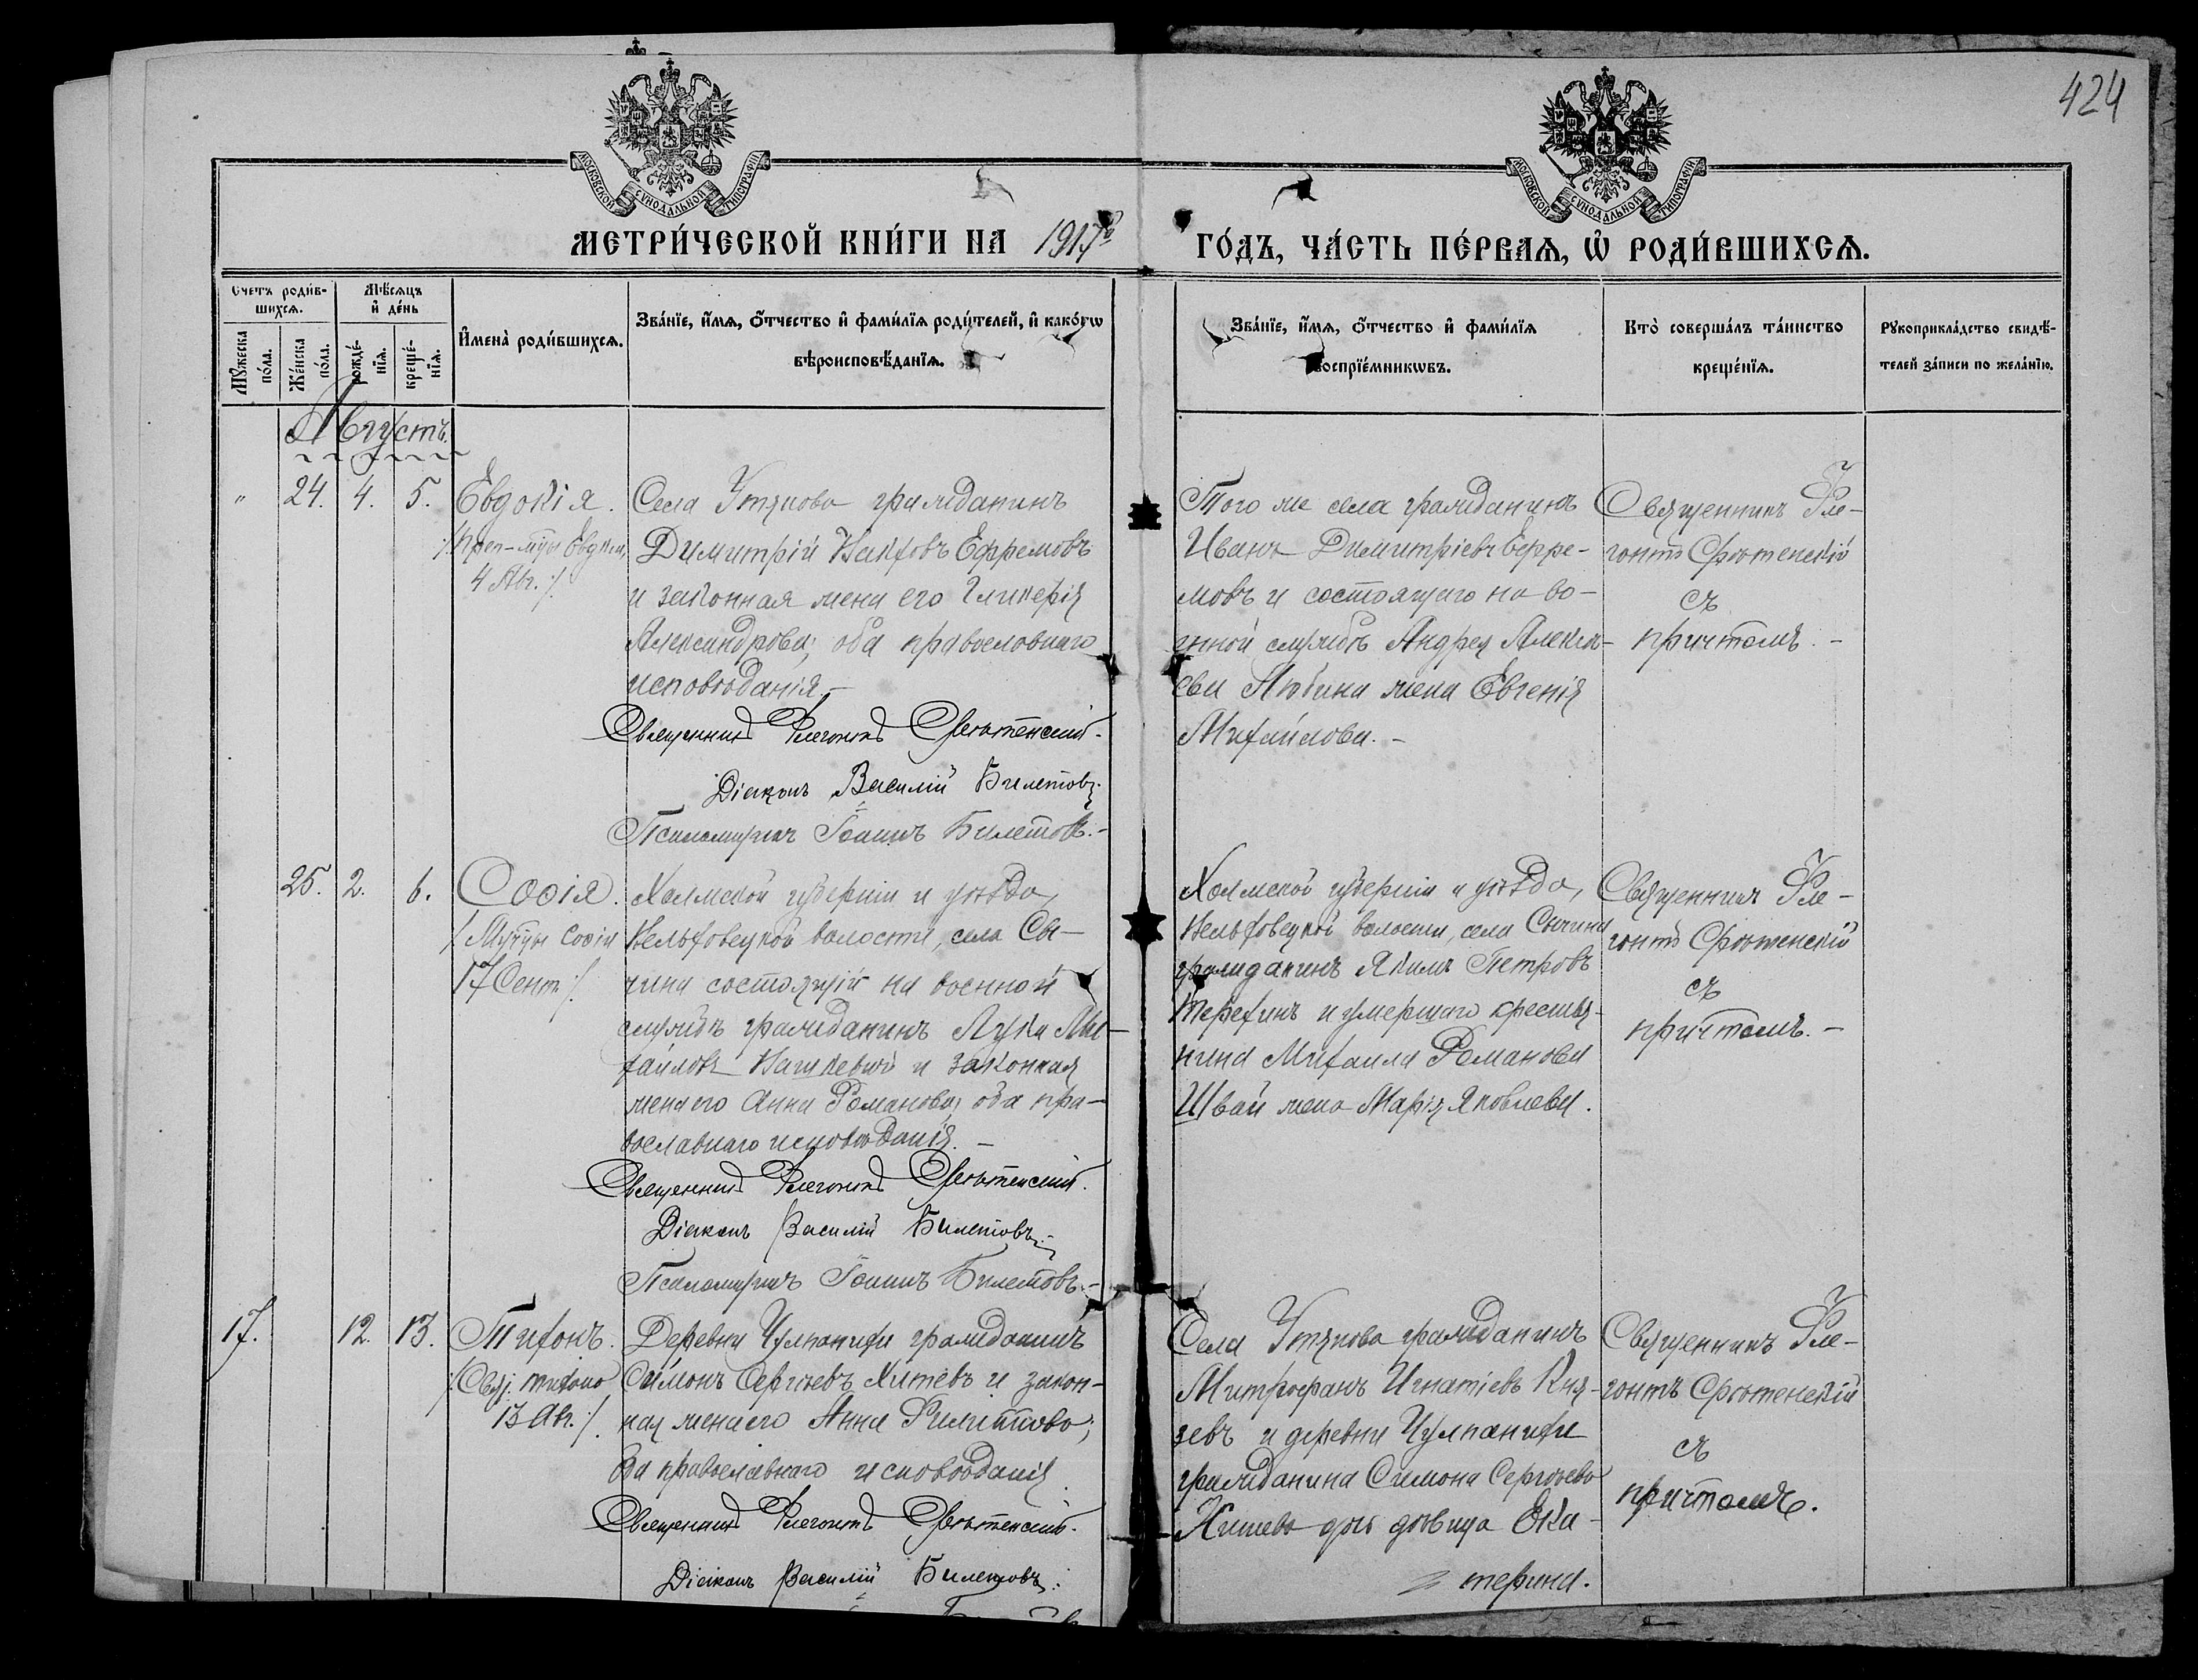 424
МОСКОВСКОЙ СУНОДАЛЬНОЙ ТИПОГРАФІИ
МОСКОВСКОЙ СУНОДАЛЬНОЙ ТИПОГРАФІИ
МЕТРИ́ЧЕСКОЙ КНИ́ГИ НА 1917й ГО́ДЪ, ЧА́СТЬ ПЕ́РВАЯ, Ѡ҆ РОДИ́ВШИХСЯ.
Счетъ роди́в-
шихся.
Мѣ́сяцъ
и҆ де́нь
Мꙋ́жеска
по́ла.
Же́нска
по́ла.
рожде́-
нїя.
креще́-
нїя.
И҆мена̀ роди́вшихся.
Зва́нїе, и҆́мя, ѻ҆́тчество и҆ фами́лїя роди́телей, и҆ како́гѡ
вѣроисповѣ́данїя.
Зва́нїе, и҆́мя, ѻ҆́тчество и҆ фами́лїя
воспрїе́мникѡвъ.
Кто̀ соверша́лъ та́инство
креще́нїя.
Рꙋкоприкла́дство свидѣ́-
телей за́писи по жела́нїю.
Августъ.
" 24. 4. 5.
Евдокія.
4 Авг. :/.
Села Утяково гражданинъ
Димитрій Ефремовъ
и законная жена его Гликерія
Александрова; оба православнаго
исповѣданія. –
Священникъ Флегонтъ Срѣтенскій. –
Діаконъ Василій Билетовъ.
Псаломщикъ Іоаннъ Билетовъ. –
Того же села гражданинъ
Иванъ Димитріевъ Ефре-
мовъ и состоящаго на во-
енной службѣ Андрея Алексѣ-
ева Любина жена Евгенія
Михайлова. –
Священникъ Фле-
гонтъ Срѣтенскій
съ
причтомъ. –
25. 2. 6.
Софія.
/: Муч-цы Софіи
17 Сент. :/.
Холмской губерніи и уѣзда,
волости, села Сы-
чина состоящій на военной
службѣ гражданинъ Лука Ми-
хайловъ и законная
жена его Анна Романова; оба пра-
вославнаго исповѣданія. –
Священникъ Флегонтъ Срѣтенскій.
Діаконъ Василій Билетовъ.
Псаломщикъ Іоаннъ Билетовъ. –
Холмской губерніи и уѣзда,
волости, села Сычина
гражданинъ Якимъ Петровъ
Терехинъ и умершаго крестья-
нина Михаила Романова
Швай жена Марія Яковлева.
Священникъ Фле-
гонтъ Срѣтенскій
съ
причтомъ. –
17. 12. 13.
Тихонъ.
/: Свят. Тихона
13 Авг. :/.
Деревни Чулпанихи гражданинъ
Симонъ Сергѣевъ Хитевъ и закон-
ная жена его Анна Филиппова;
оба православнаго исповѣданія.
Священникъ Флегонтъ Срѣтенскій.
Діаконъ Василій Билетовъ.
Села Утяково гражданинъ
Митрофанъ Игнатіевъ Кня-
зевъ и деревни Чулпанихи
гражданина Симона Сергѣева
Хитева дочь дѣвица Ека-
терина.
Священникъ Фле-
гонтъ Срѣтенскій
съ
причтомъ.